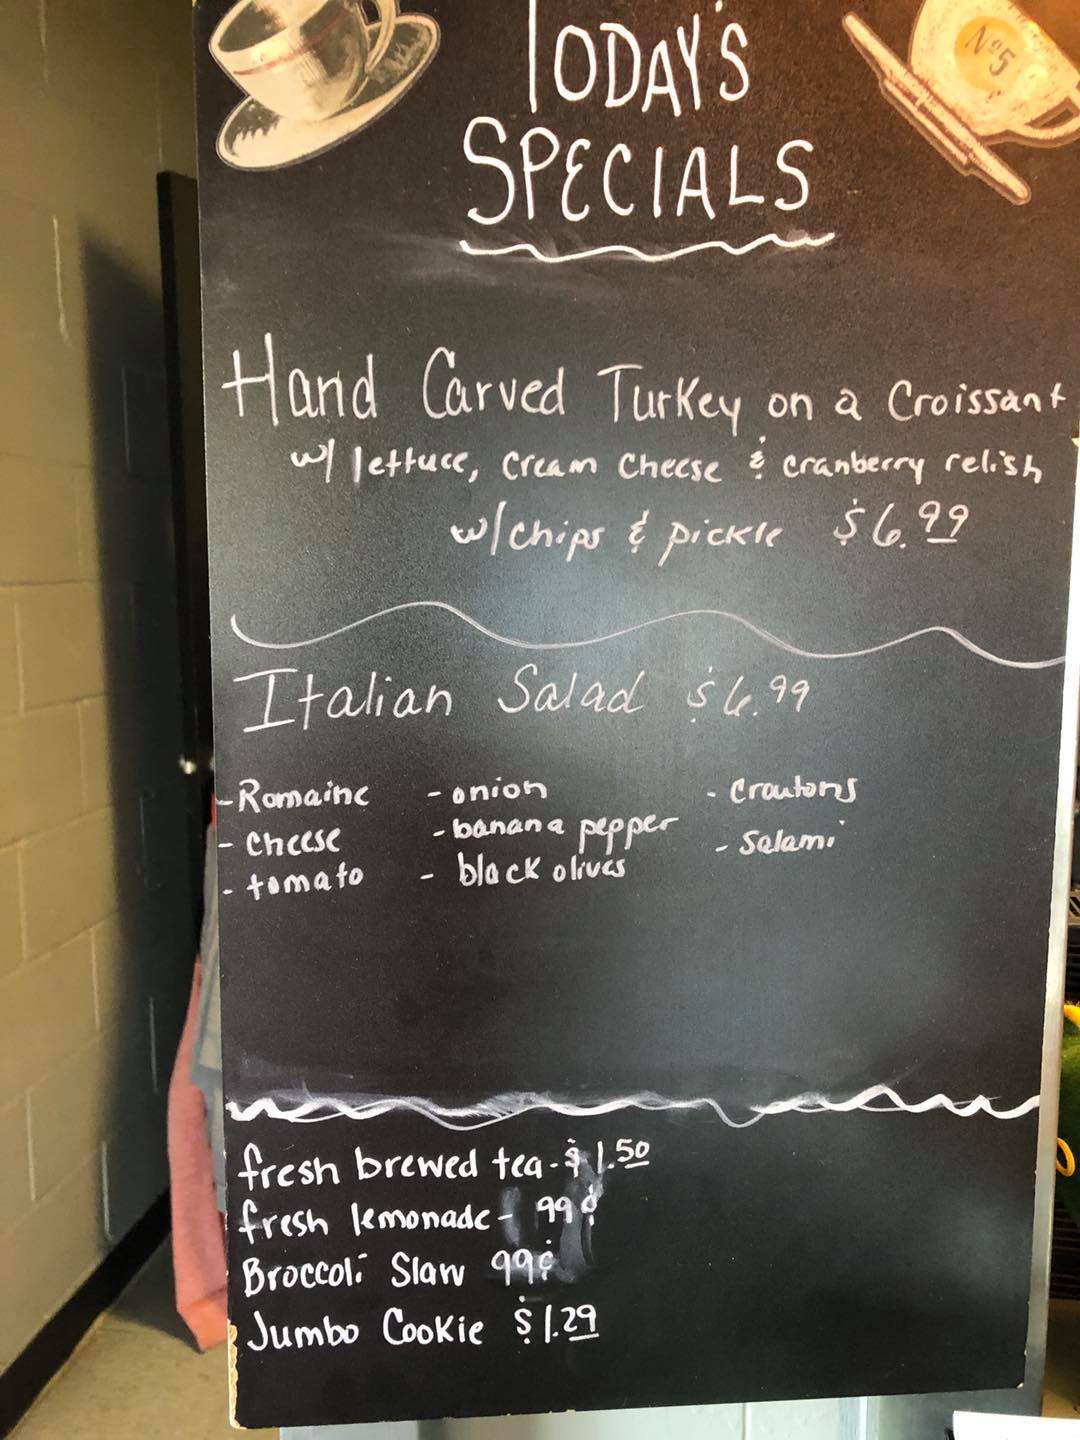 TODAY'S
SPECIALS
N°5
Hand Carved Turkey on a Croissant
w/ lettuce, cream cheese & cranberry relish
w/ chips & pickle $6.99
Italian Salad $6.99
- Romaine - onion - croutons
- cheese - banana pepper - salami
- tomato - black olives
fresh brewed tea - $1.50
fresh lemonade - 99¢
Broccoli Slaw 99¢
Jumbo Cookie $1.29